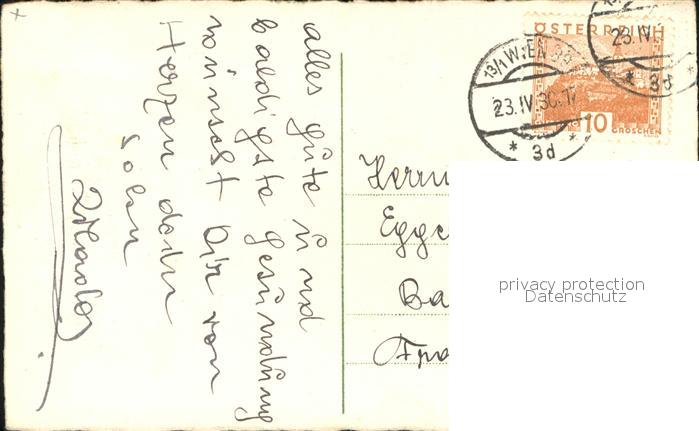 alles gute und
baldigste gesundung
wünscht Dir von
Herzen dein
Herrn
Ba
ÖSTERREICH
10 GROSCHEN
13/1 WIEN
23.IV.30.17
* 3d *
23.IV
* 3d *
privacy protection
Datenschutz